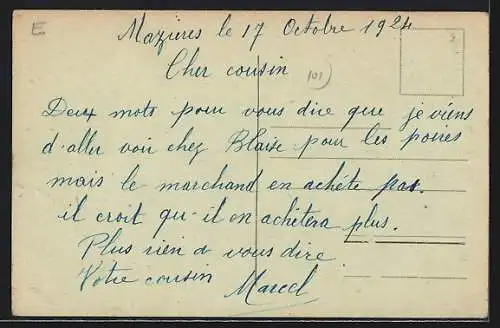 E
Mazières le 17 Octobre 1924
Cher cousin
101
Deux mots pour vous dire que je viens
d'aller voir chez Blaise pour les poires
mais le marchand en achète pas.
il croit qu-il en achètera plus.
Plus rien a vous dire
Votre cousin Marcel